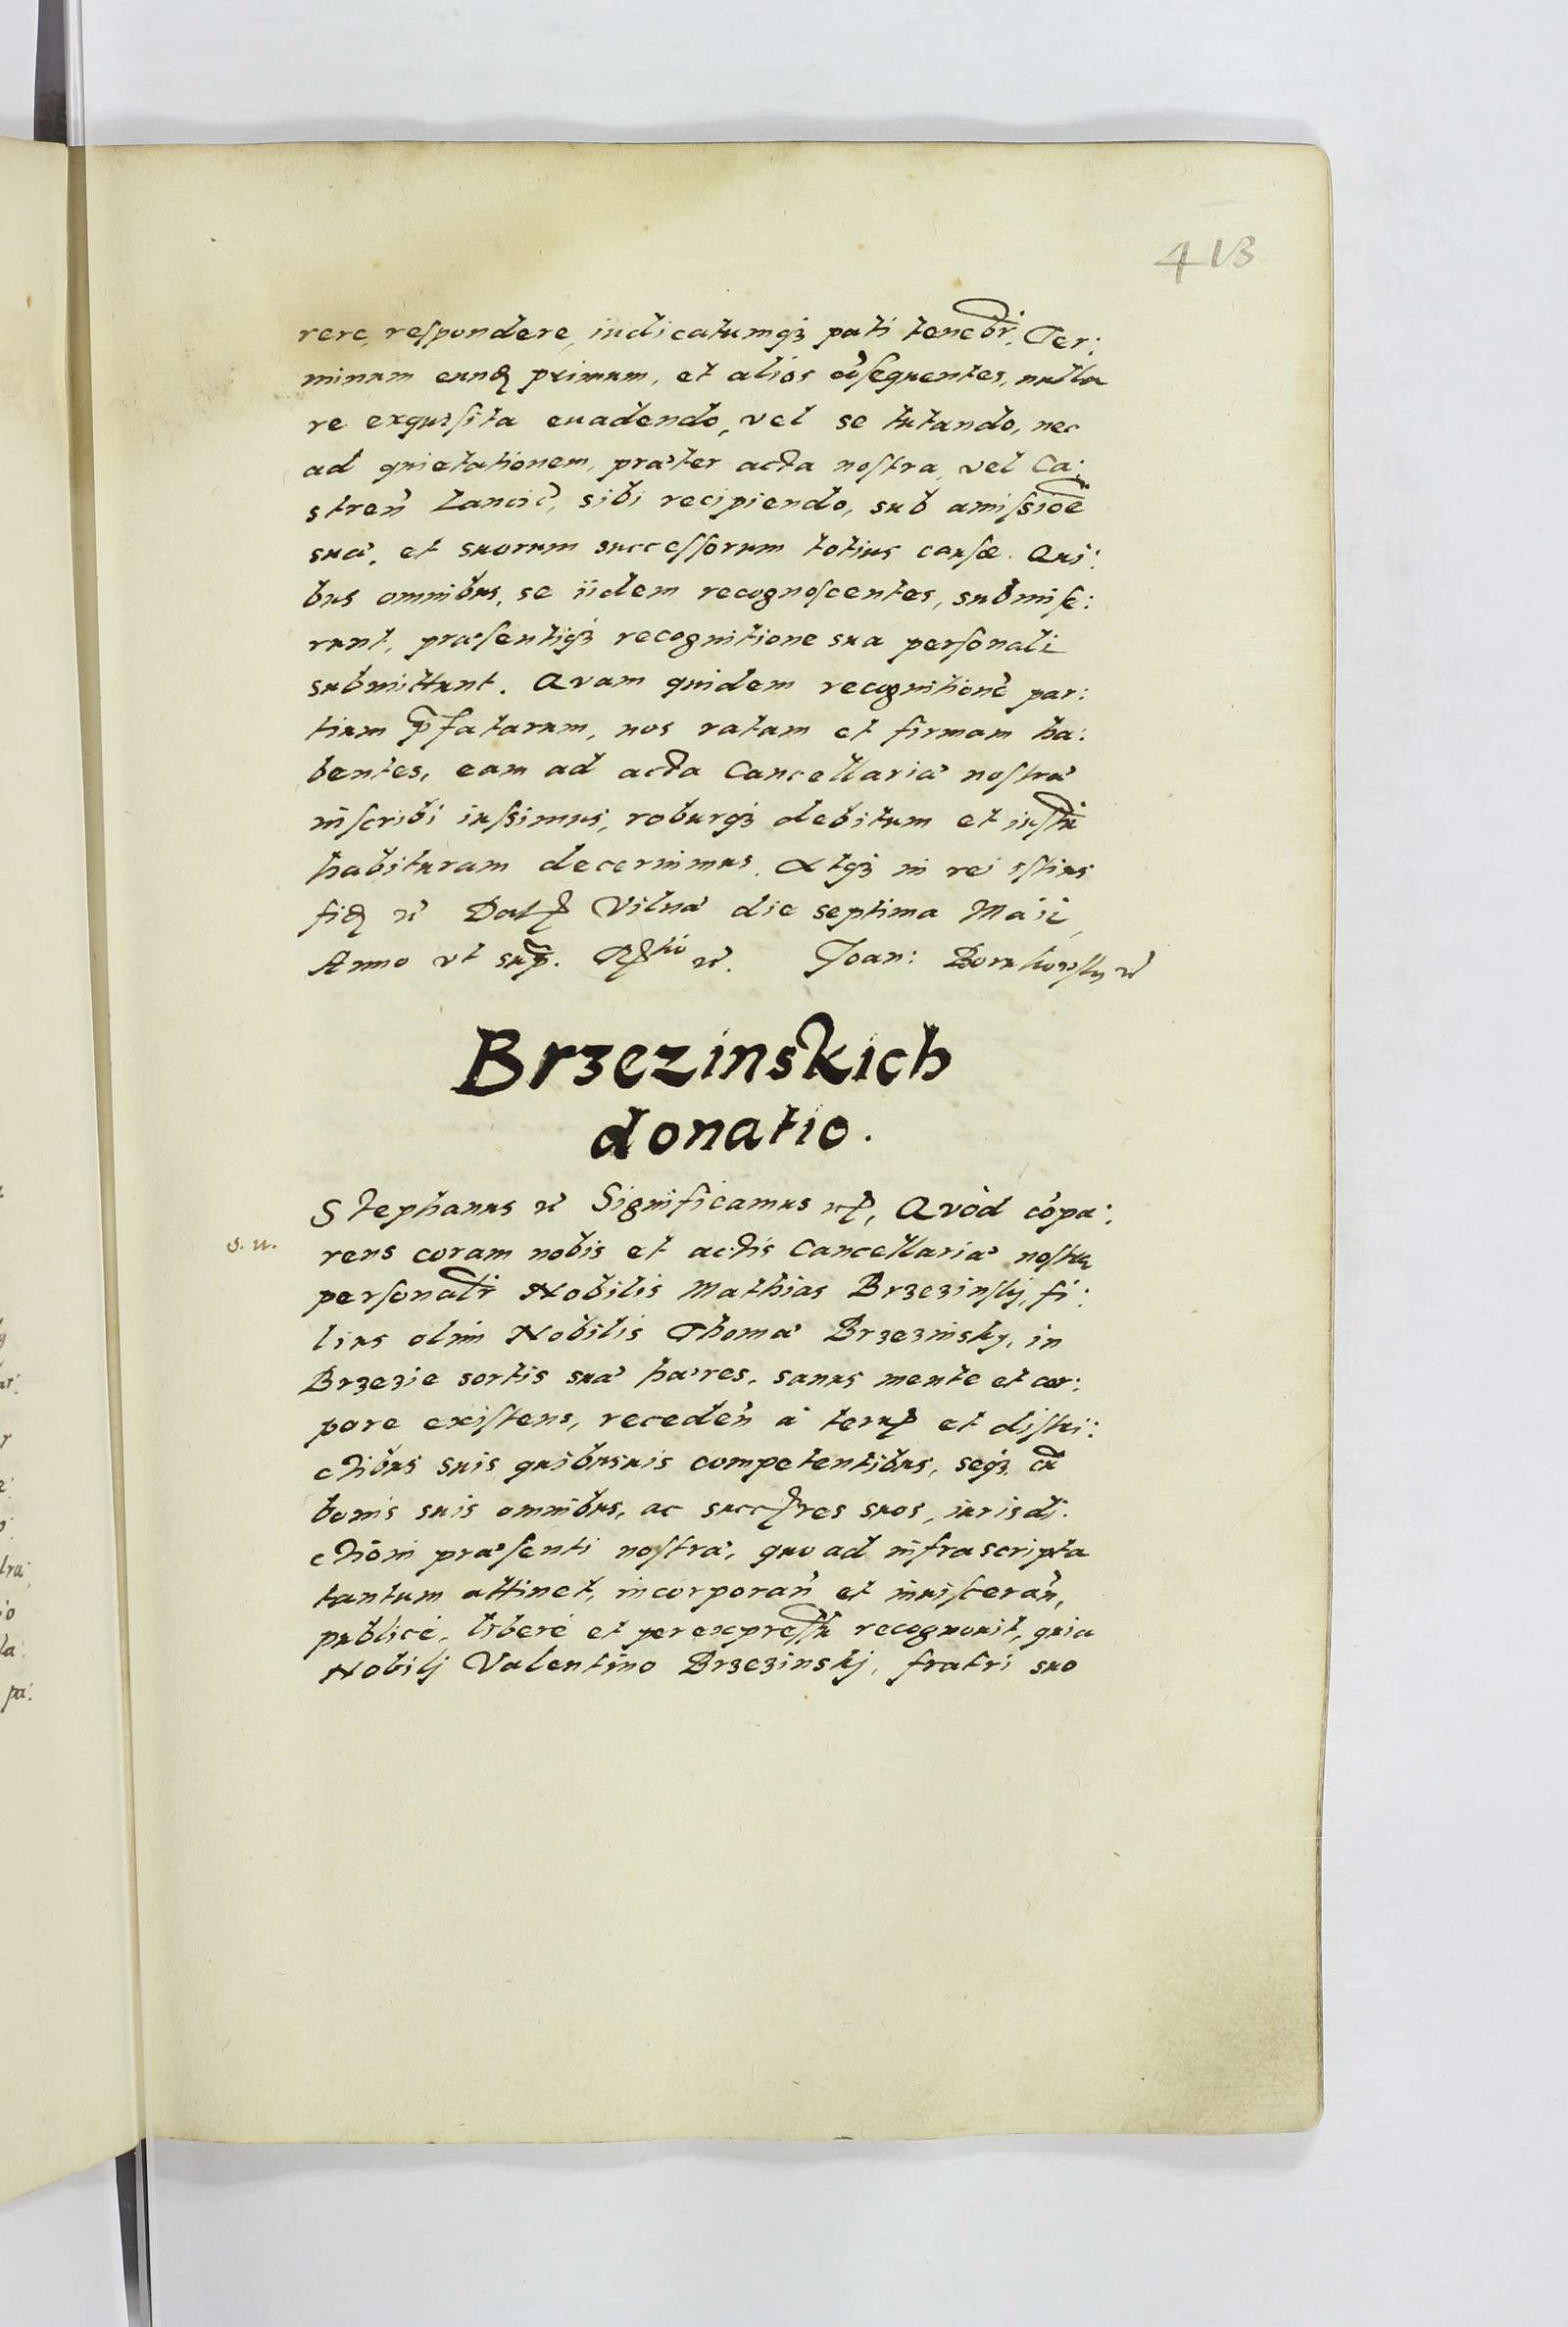 413
rere, respondere, iudicatumqꝫ pati tenebr̃. Ter:
minum eundꝫ primum, et alios cõsequentes, nulla
re exquisita euadendo, vel se tutando, nec
ad quietationem, præter acta nostra, vel Ca:
streñ Lancic̃, sibi recipiendo, sub amissiõe
suæ, et suorum successorum totius causæ. Qui:
bus omnibus, se iidem recognoscentes, submise:
runt, præsentiqꝫ recognitione sua personali
submittunt. Quam quidem recognitionẽ par:
tium p̃fatarum, nos ratam et firmam ha:
bentes, eam ad acta Cancellariæ nostræ
inscribi iussimus, roburqꝫ debitum et iustũ
habituram decernimus. Atqꝫ in rei istius
fidꝫ etc̃ Dat Vilnæ die septima Maii,
Anno vt sup̃. Rtio etc̃. Joan: Borukowsky etc̃
Brzezinskich
donatio.
Stephanus etc̃ Significamus etc̃, Quòd cõpa:
s. u.
rens coram nobis et actis Cancellariæ nostræ
personalr̃ Nobilis Mathias Brzezinskj, fi:
lius olim Nobilis Thomæ Brzezinsky, in
Brzezie sortis suæ hæres, sanus mente et cor:
pore existens, recedeñ à terr et distri:
ctibus suis quibusuis competentibus, seqꝫ cũ
bonis suis omnibus, ac succres suos, iurisdi:
ctioni præsenti nostræ, quo ad infrascripta
tantum attinet, incorporañ et inuisceran̄,
publicè, liberè et per expressũ recognouit, quia
Nobilj Valentino Brzezinskj, fratri suo